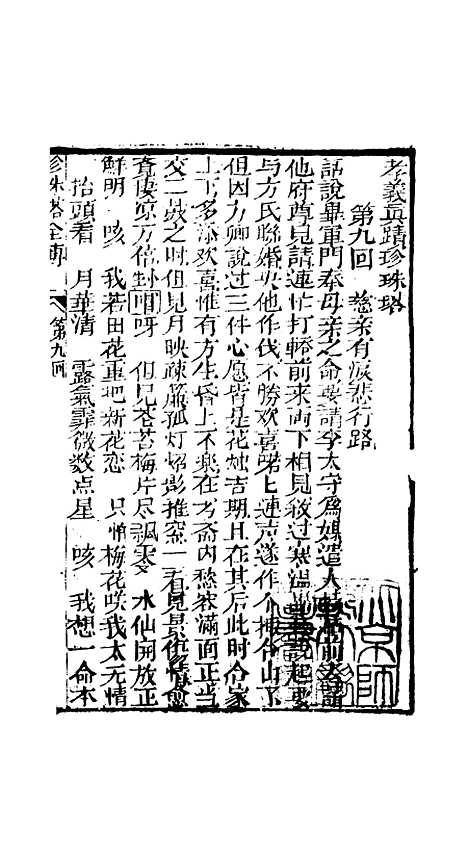 孝義眞蹟珍珠塔
第九回　慈亲有淚悲行路
話說畢軍門奉母亲之命要請李太守爲媒遣人前去請
他府尊見請連忙打轎前来两下相見敘过寒温說起要
与方氏聯婚央他作伐不勝欢喜諾上連声遂作介掸合山下
但因方卿說过三件心愿皆是花烛吉期且在其后此时合家
上下多添欢喜惟有方生昏上不樂在书斋内愁容滿面正当
交二鼓之时但見月映疎簾孤灯熖影推窓一看見景伤情愈
斉凄凉万倍封唱呀　但見苍苔梅片尽飄零　水仙開放正
鮮明　咳　我若田花重把新花恋　只怕梅花咲我太无情
抬頭看　月華清　露氣霏微数点星　咳　我想一命本
珍珠塔全傳　第九回
京师